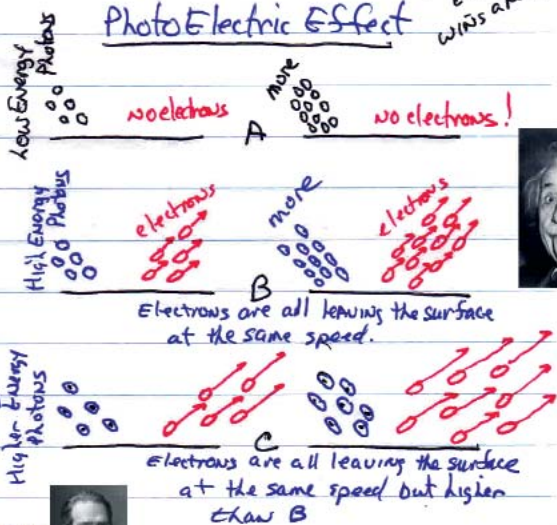 PhotoElectric Effect
WINS
Low Energy
Photons
No electrons
A
more
No electrons!
High Energy
Photons
electrons
more
electrons
B
Electrons are all leaving the surface
at the same speed.
Higher Energy
Photons
C
Electrons are all leaving the surface
at the same speed but higher
than B